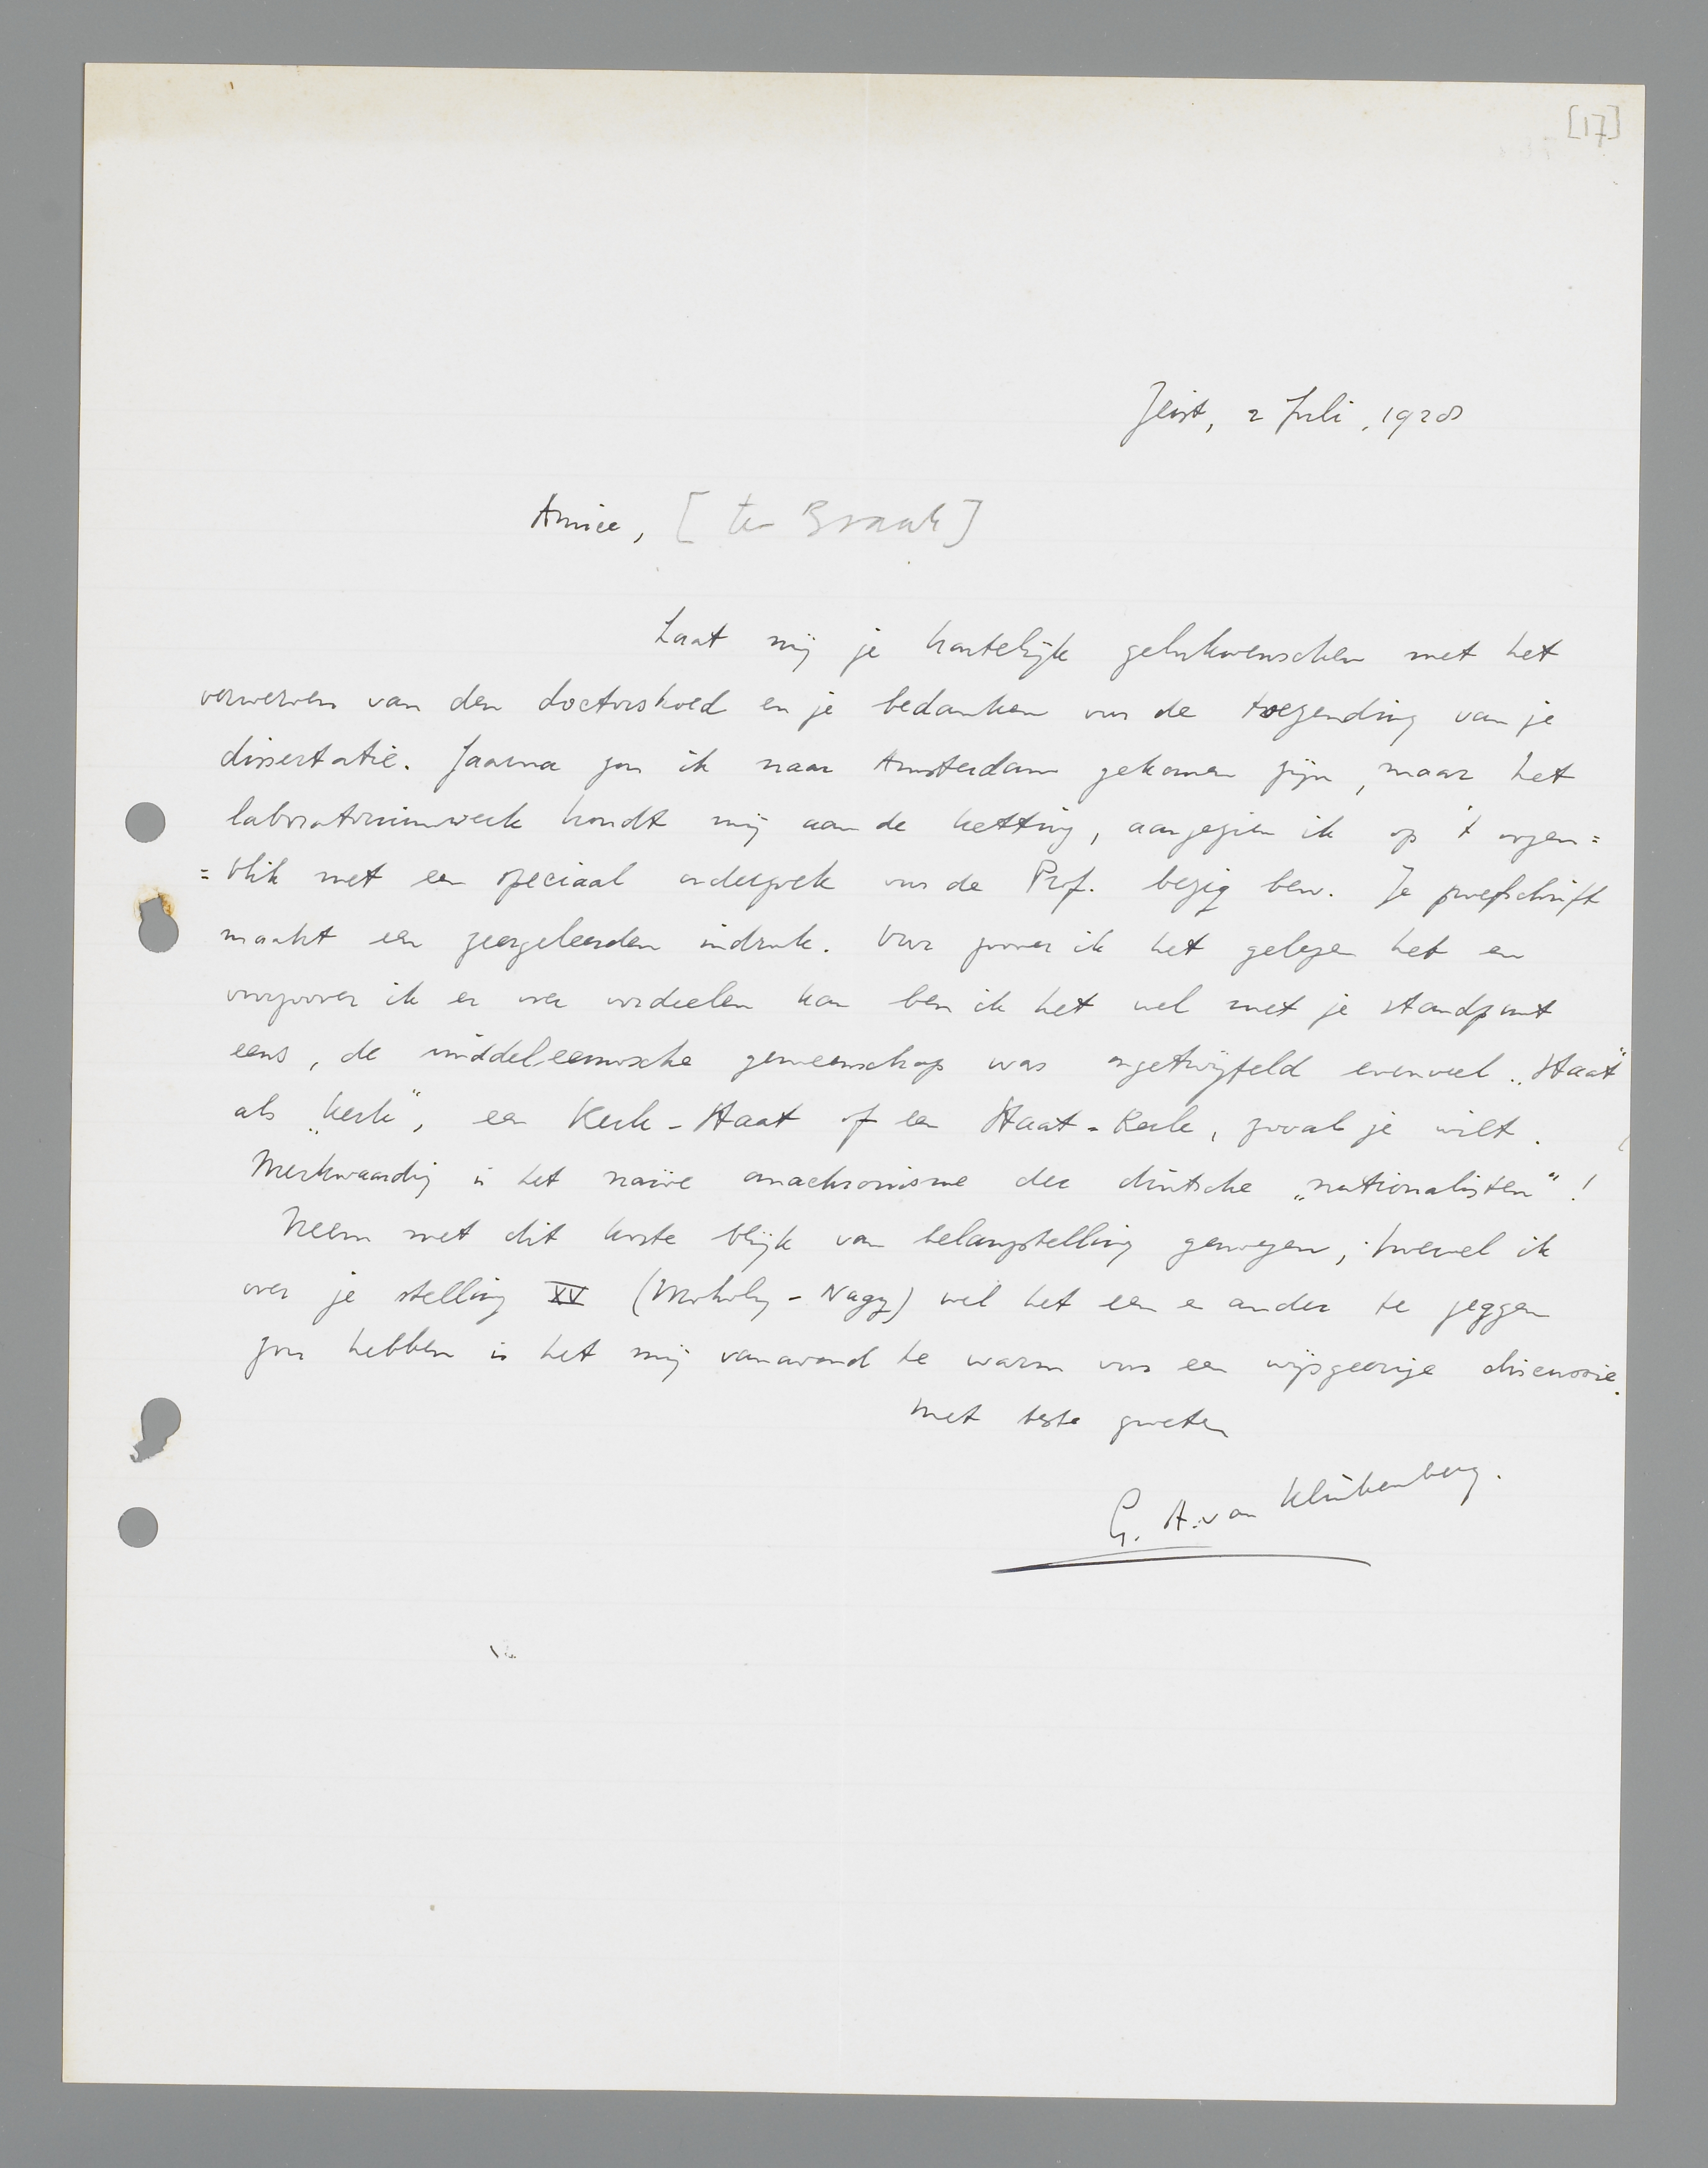 [17]
Zeist, 2 Juli, 1928
Amice, [ter Braak]
Laat mij je hartelijk gelukwenschen met het
verwerven van den doctorshoed en je bedanken voor de toezending van je
dissertatie. Gaarne zou ik naar Amsterdam gekomen zijn, maar het
laboratoriumwerk houdt mij aan de ketting, aangezien ik op 't oogen=
=blik met een speciaal onderzoek voor de Prof. bezig ben. Je proefschrift
maakt een zeergeleerden indruk. Voor zoover ik het gelezen heb en
voorzoover ik er over oordeelen kan ben ik het wel met je standpunt
eens, de middeleeuwsche gemeenschap was ongetwijfeld evenveel „Staat"
als „Kerk", een Kerk-Staat of een Staat-Kerk, zooals je wilt.
Merkwaardig is het naïve anachronisme der duitsche „nationalisten"!
Neem met dit korte blijk van belangstelling genoegen; hoewel ik
over je stelling XV (Moholy-Nagy) wel het een en ander te zeggen
zou hebben is het mij vanavond te warm voor een wijsgeerige discussie.
Met beste groeten
G. A. van Klinkenberg.